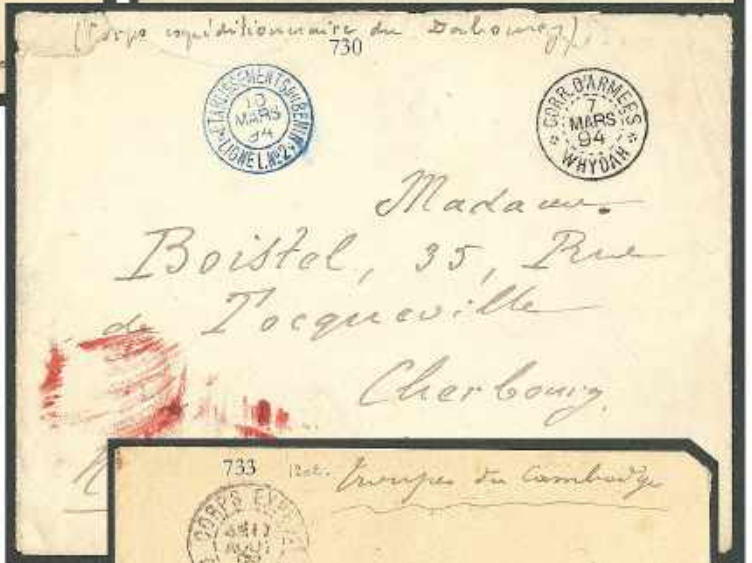 (Corps expéditionnaire du Dahomey)
730
ETABLISSEMENTS DU BENIN
10
MARS
94
LIGNE L.Nº2
CORR. D'ARMEES
7
MARS
94
WHYDAH
Madame
Boistel, 35, Rue
de Tocqueville
Cherbourg.
733
Troupes du Cambodge
CORPS